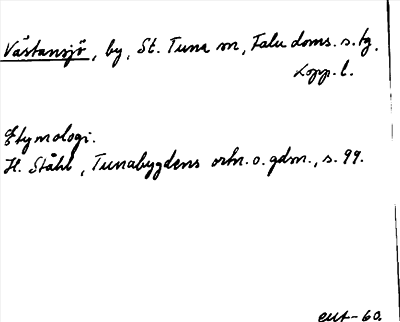 Västansjö, by, St. Tuna sn, Falu doms. s. tg.
Kopp. l.
Etymologi.
H. Ståhl, Tunabygdens ortn. o. gdn., s. 99.
-60.